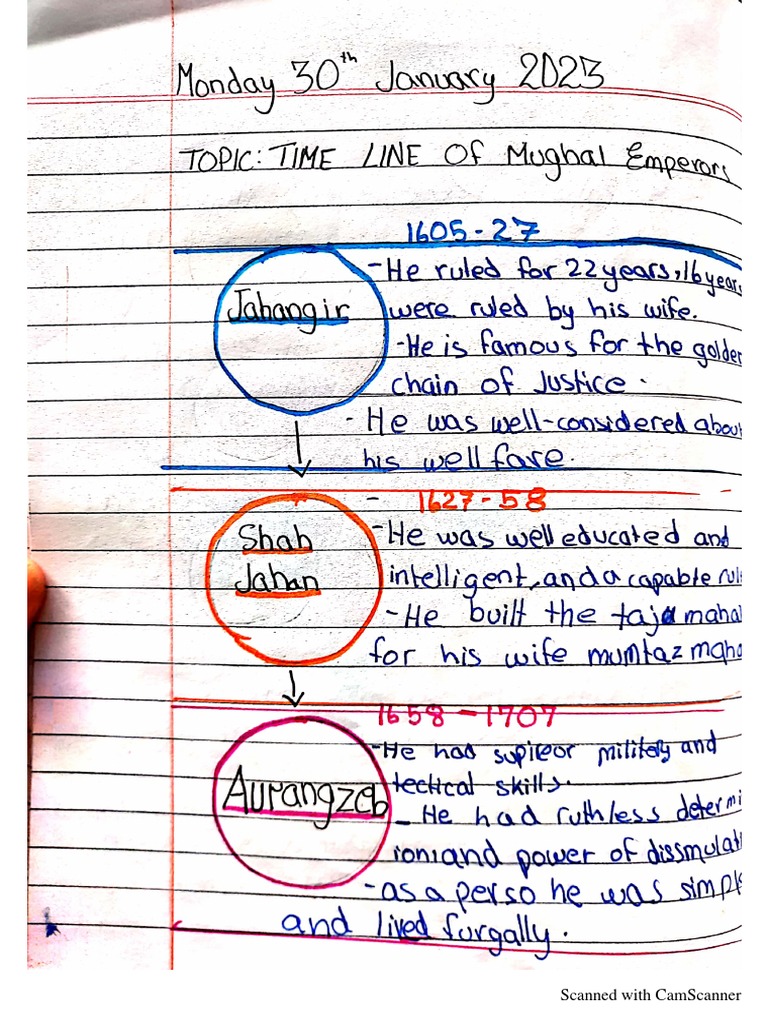 Monday 30th January 2023
TOPIC: TIME LINE OF Mughal Emperors
1605-27
Jahangir
-He ruled for 22 years, 16 years
were ruled by his wife.
-He is famous for the golden
chain of Justice.
- He was well-considered about
his well fare.
- 1627-58
Shah
Jahan
-He was well educated and
intelligent, and a capable rul
-He built the taj mahal
for his wife mumtaz maha
1658-1707
Aurangzeb
-He had supireor military and
tectical skills.
- He had ruthless determi
ion and power of dissmulati
-as a perso he was simple
and lived furgally.
Scanned with CamScanner